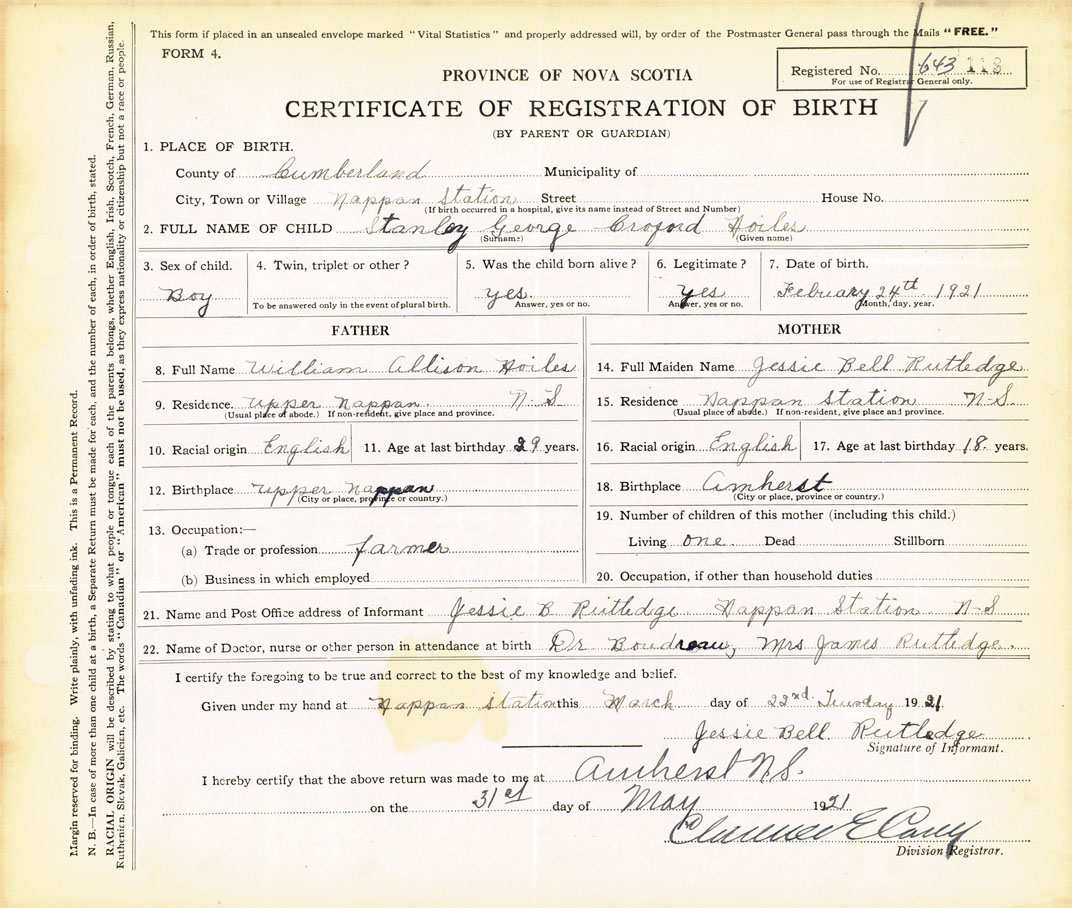 This form if placed in an unsealed envelope marked "Vital Statistics" and properly addressed will, by order of the Postmaster General pass through the Mails "FREE."
FORM 4.
Registered No. 643 113
For use of Registrar General only.
PROVINCE OF NOVA SCOTIA
CERTIFICATE OF REGISTRATION OF BIRTH
(BY PARENT OR GUARDIAN)
1. PLACE OF BIRTH.
County of Cumberland Municipality of
City, Town or Village Nappan Station Street House No.
(If birth occurred in a hospital, give its name instead of Street and Number)
2. FULL NAME OF CHILD Stanley George Croford Hoiles
(Surname) (Given name)
3. Sex of child. 4. Twin, triplet or other? 5. Was the child born alive? 6. Legitimate? 7. Date of birth.
Boy yes. Yes Febuary 24th 1921
To be answered only in the event of plural birth. Answer, yes or no. Answer, yes or no. Month, day, year.
FATHER
8. Full Name William Allison Hoiles
9. Residence. Upper Nappan N-S
(Usual place of abode.) If non-resident, give place and province.
10. Racial origin English 11. Age at last birthday 29 years.
12. Birthplace Upper Nappan
(City or place, province or country.)
13. Occupation:—
(a) Trade or profession farmer
(b) Business in which employed
MOTHER
14. Full Maiden Name Jessie Bell Rutledge
15. Residence Nappan Station N-S
(Usual place of abode.) If non-resident, give place and province.
16. Racial origin English 17. Age at last birthday 18 years.
18. Birthplace Amherst
(City or place, province or country.)
19. Number of children of this mother (including this child.)
Living one Dead Stillborn
20. Occupation, if other than household duties
21. Name and Post Office address of Informant Jessie B Rutledge Nappan Station N-S
22. Name of Doctor, nurse or other person in attendance at birth Dr Boudreau, Mrs James Rutledge.
I certify the foregoing to be true and correct to the best of my knowledge and belief.
Given under my hand at Nappan Station this March day of 22nd. 1921
Jessie Bell Rutledge
Signature of Informant.
I hereby certify that the above return was made to me at Amherst N.S.
on the 31st day of May 1921
Clarence E
Division Registrar.
Margin reserved for binding. Write plainly, with unfading ink. This is a Permanent Record.
N. B.—In case of more than one child at a birth, a Separate Return must be made for each, and the number of each, in order of birth, stated.
RACIAL ORIGIN will be described by stating to what people or tongue each of the parents belongs, whether English, Irish, Scotch, French, German, Russian,
Ruthenian, Slovak, Galician, etc. The words "Canadian" or "American" must not be used, as they express nationality or citizenship but not a race or people.